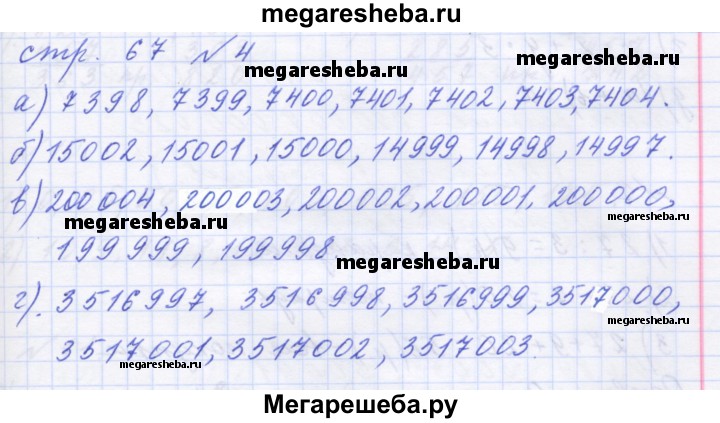 megaresheba.ru
стр. 67 №4
megaresheba.ru
а) 7398, 7399, 7400, 7401, 7402, 7403, 7404.
б) 15002, 15001, 15000, 14999, 14998, 14997.
в) 200 004, 200003, 200002, 200001, 200000,
megaresheba.ru
megaresheba.ru
199 999, 199998
megaresheba.ru
г). 3516997, 3516998, 3516999, 3517000,
3517001, 3517002, 3517003.
megaresheba.ru
megaresheba.ru
Мегарешеба.ру